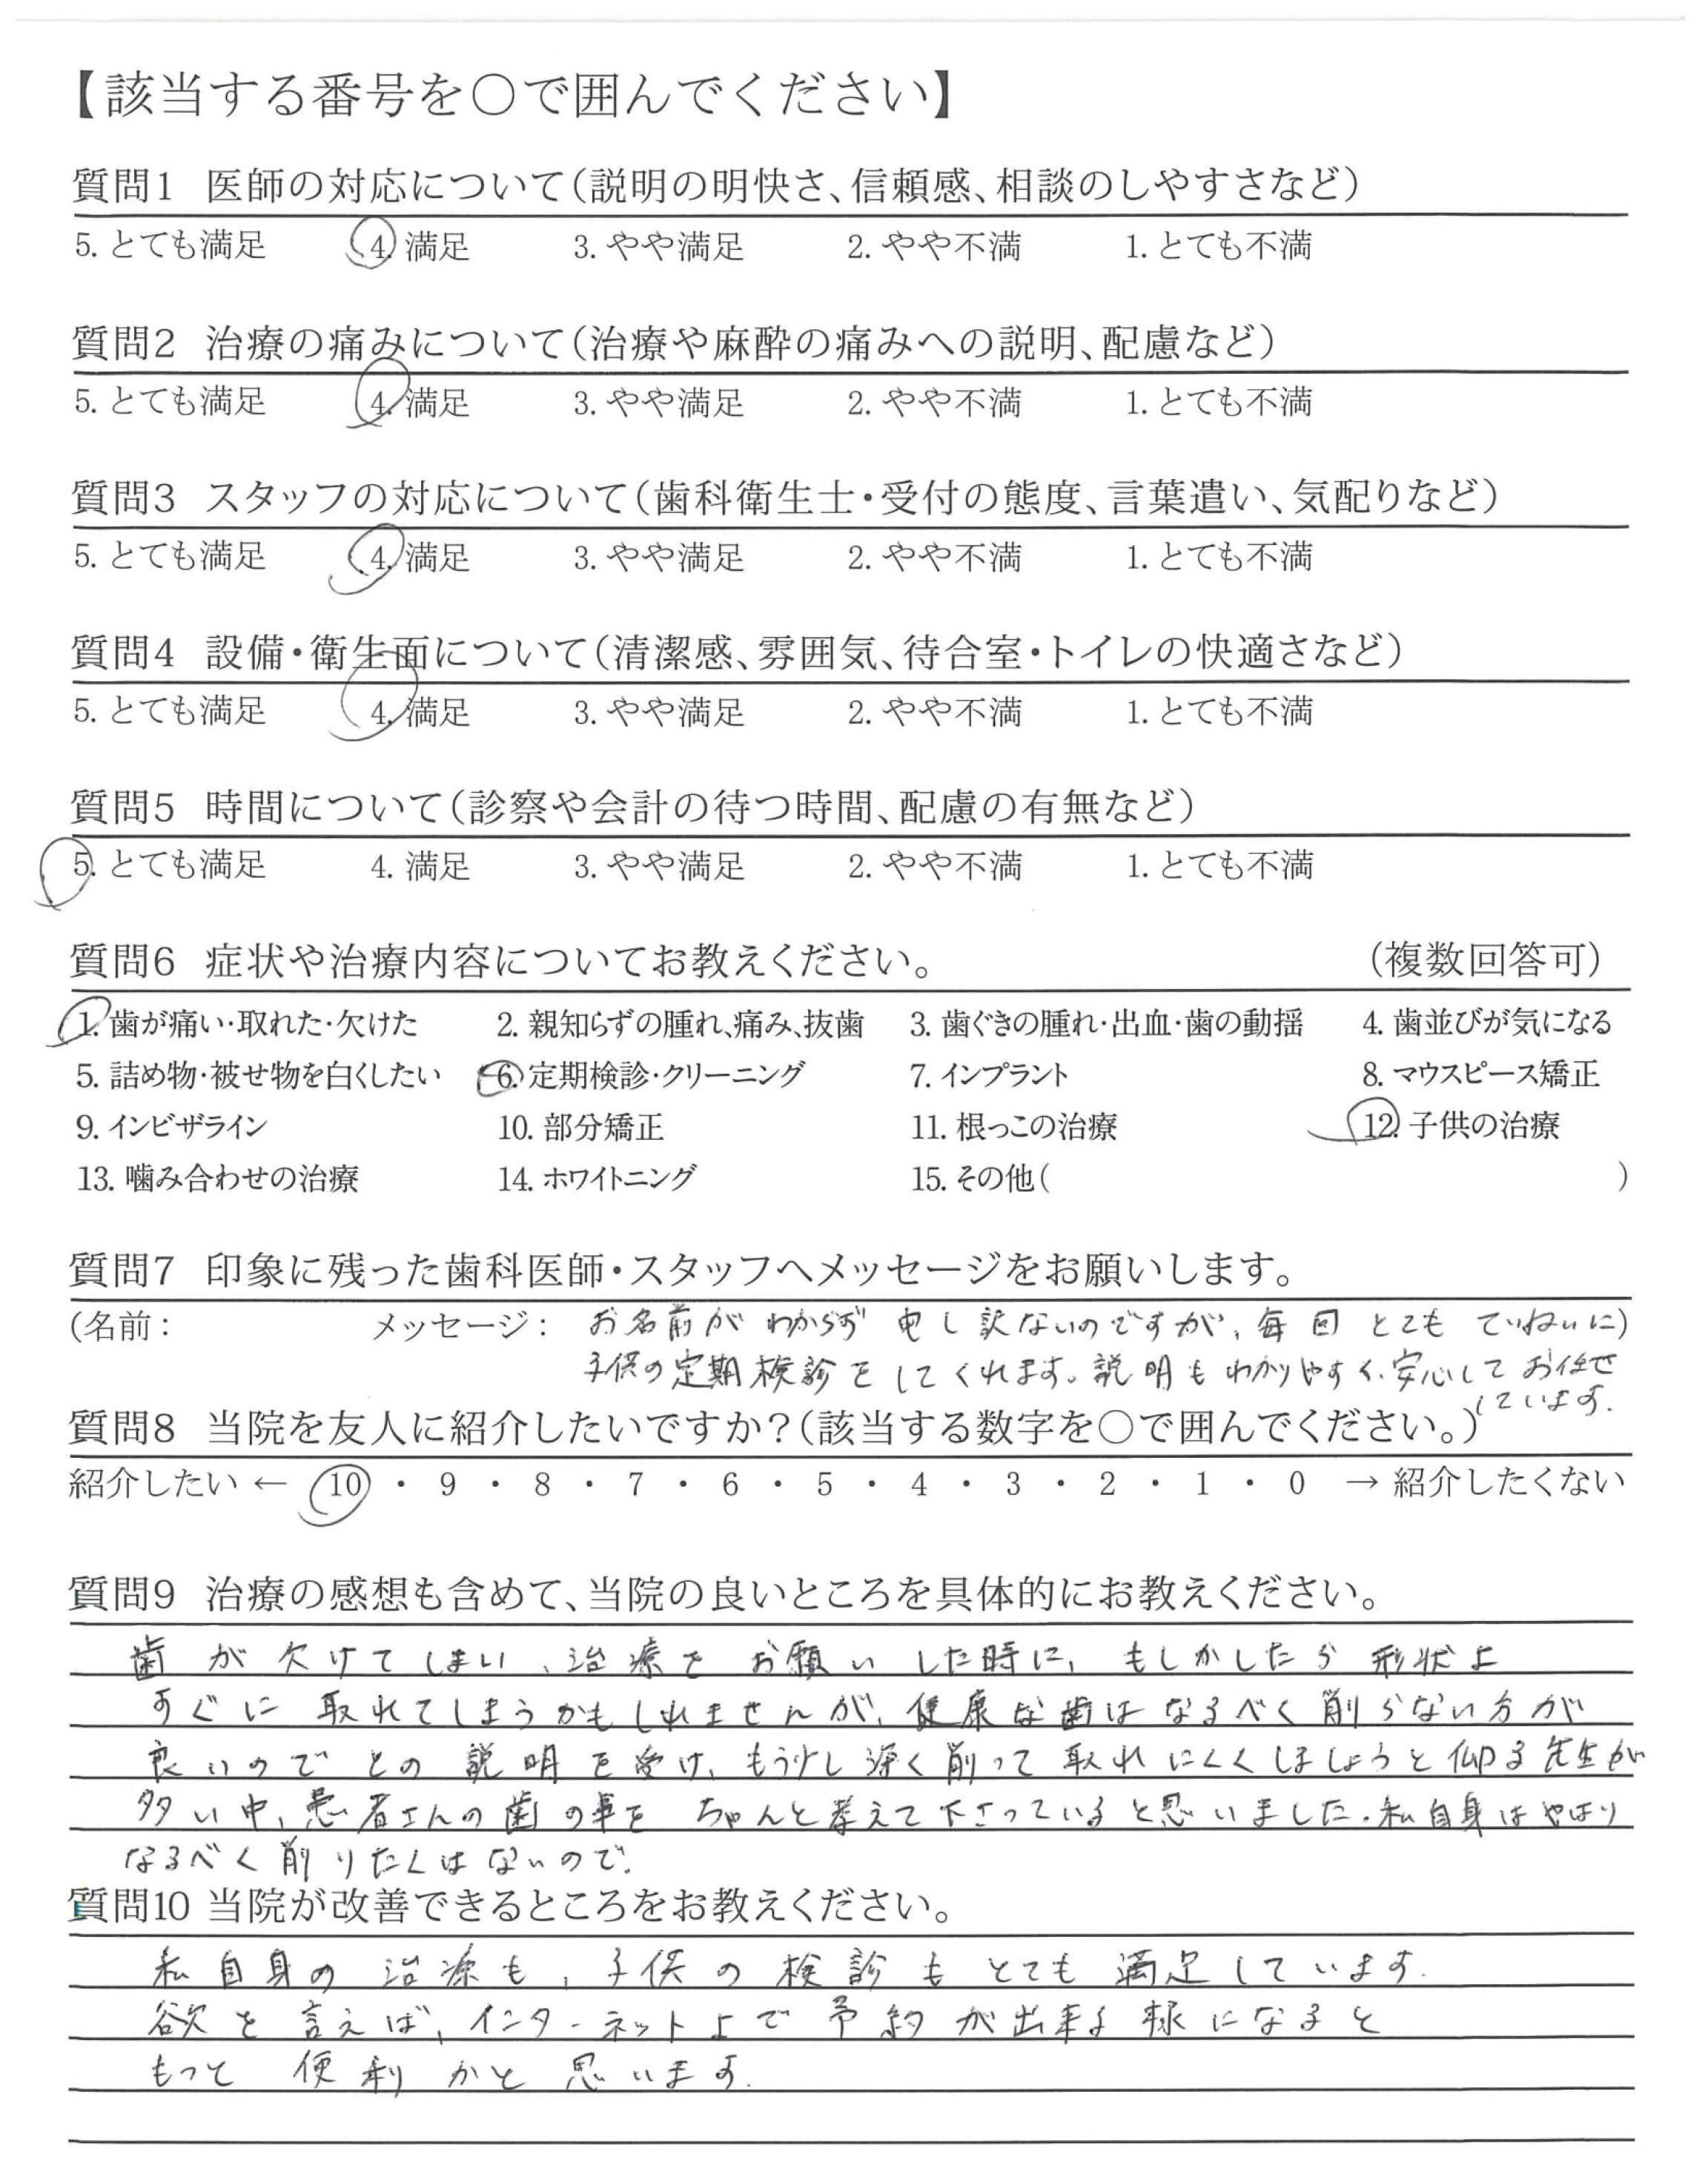 【該当する番号を○で囲んでください】
質問1 医師の対応について(説明の明快さ、信頼感、相談のしやすさなど)
5. とても満足 4. 満足 3. やや満足 2. やや不満 1. とても不満
質問2 治療の痛みについて(治療や麻酔の痛みへの説明、配慮など)
5. とても満足 4. 満足 3. やや満足 2. やや不満 1. とても不満
質問3 スタッフの対応について(歯科衛生士・受付の態度、言葉遣い、気配りなど)
5. とても満足 4. 満足 3. やや満足 2. やや不満 1. とても不満
質問4 設備・衛生面について(清潔感、雰囲気、待合室・トイレの快適さなど)
5. とても満足 4. 満足 3. やや満足 2. やや不満 1. とても不満
質問5 時間について(診察や会計の待つ時間、配慮の有無など)
5. とても満足 4. 満足 3. やや満足 2. やや不満 1. とても不満
質問6 症状や治療内容についてお教えください。 (複数回答可)
1. 歯が痛い・取れた・欠けた 2. 親知らずの腫れ、痛み、抜歯 3. 歯ぐきの腫れ・出血・歯の動揺 4. 歯並びが気になる
5. 詰め物・被せ物を白くしたい 6. 定期検診・クリーニング 7. インプラント 8. マウスピース矯正
9. インビザライン 10. 部分矯正 11. 根っこの治療 12. 子供の治療
13. 噛み合わせの治療 14. ホワイトニング 15. その他( )
質問7 印象に残った歯科医師・スタッフへメッセージをお願いします。
(名前: メッセージ: お名前がわからず申し訳ないのですが、毎回とてもていねいに)
子供の定期検診をしてくれます。説明もわかりやすく、安心してお任せ
しています。
質問8 当院を友人に紹介したいですか?(該当する数字を○で囲んでください。)
紹介したい ← 10 ・ 9 ・ 8 ・ 7 ・ 6 ・ 5 ・ 4 ・ 3 ・ 2 ・ 1 ・ 0 → 紹介したくない
質問9 治療の感想も含めて、当院の良いところを具体的にお教えください。
歯が欠けてしまい、治療をお願いした時に、もしかしたら形状上
すぐに取れてしまうかもしれませんが、健康な歯はなるべく削らない方が
良いのでとの説明を受け、もう少し深く削って取れにくくしましょうと仰る先生が
多い中、患者さんの歯の事をちゃんと考えて下さっていると思いました。私自身はやはり
なるべく削りたくはないので。
質問10 当院が改善できるところをお教えください。
私自身の治療も、子供の検診もとても満足しています。
欲を言えば、インターネット上で予約が出来る様になると
もっと便利かと思います。